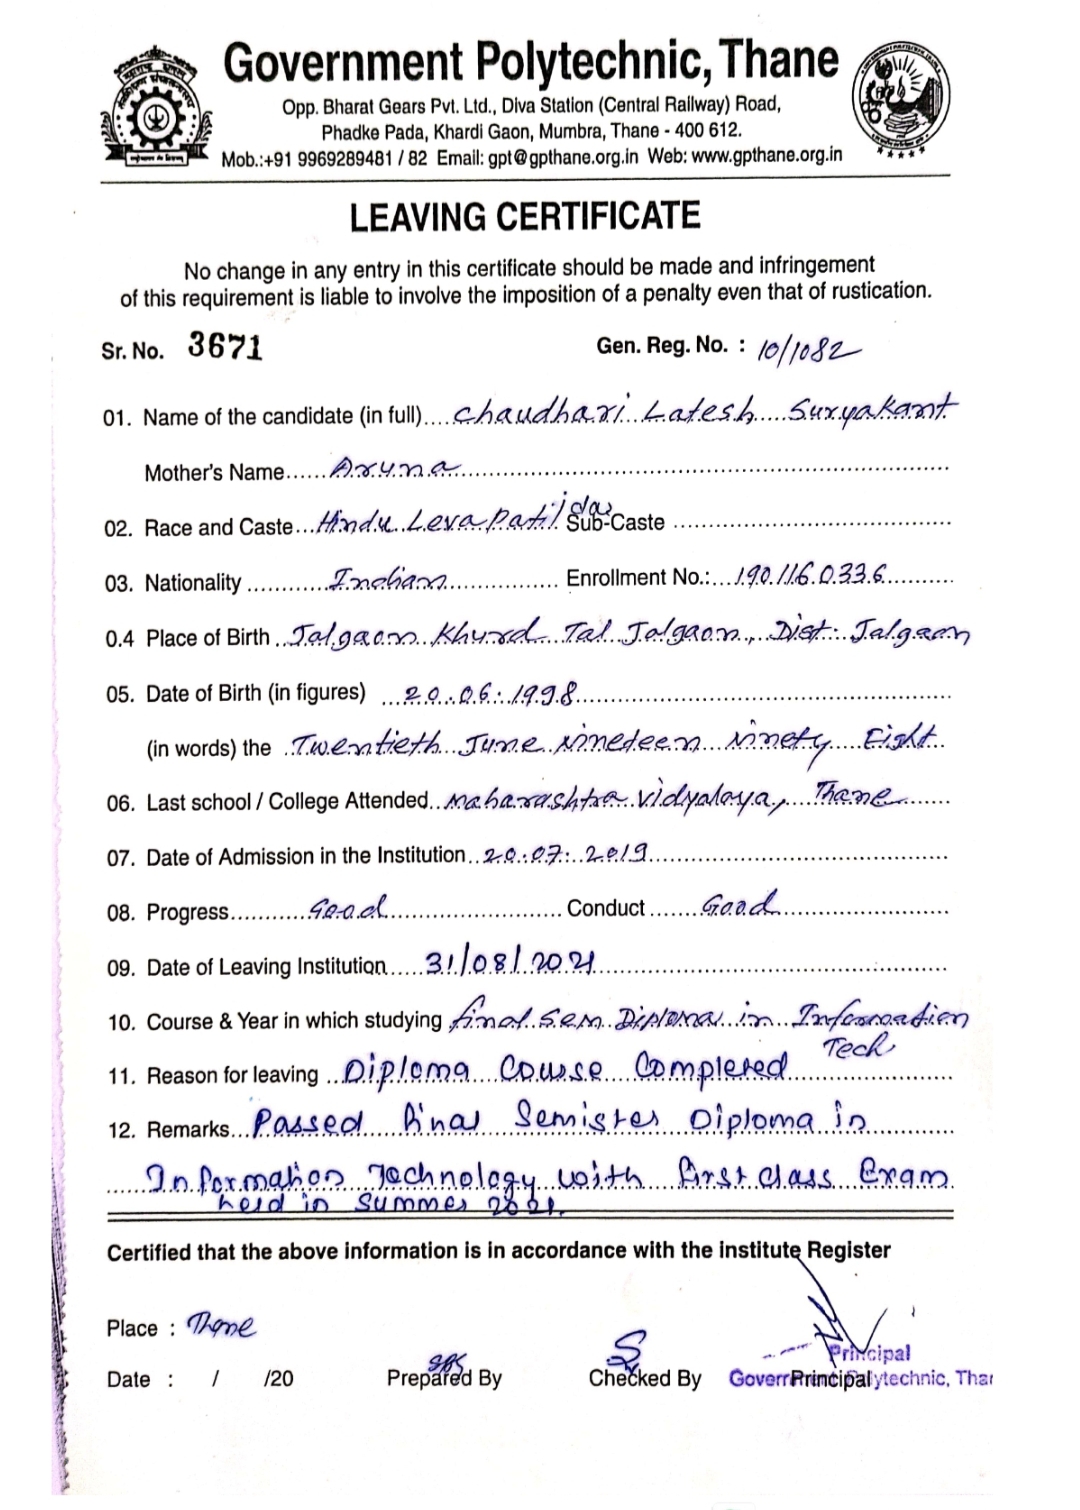 Government Polytechnic, Thane
Opp. Bharat Gears Pvt. Ltd., Diva Station (Central Railway) Road,
Phadke Pada, Khardi Gaon, Mumbra, Thane - 400 612.
Mob.:+91 9969289481 / 82 Email: gpt@gpthane.org.in Web: www.gpthane.org.in
LEAVING CERTIFICATE
No change in any entry in this certificate should be made and infringement
of this requirement is liable to involve the imposition of a penalty even that of rustication.
Sr. No. 3671 Gen. Reg. No. : 10/1082
01. Name of the candidate (in full) Chaudhari Latesh Suryakant
Mother's Name Aruna
02. Race and Caste Hindu Leva Patidar Sub-Caste
03. Nationality Indian Enrollment No.: 1901160336
0.4 Place of Birth Jalgaon Khurd Tal Jalgaon, Dist: Jalgaon
05. Date of Birth (in figures) 20.06.1998
(in words) the Twentieth June Nineteen Ninety Eight
06. Last school / College Attended Maharashtra Vidyalaya, Thane
07. Date of Admission in the Institution 20.07.2019
08. Progress Good Conduct Good
09. Date of Leaving Institution 31/08/2021
10. Course & Year in which studying final Sem Diploma in Information
Tech
11. Reason for leaving Diploma Course Completed
12. Remarks Passed final Semister Diploma in
Information Technology with first class Exam
held in Summer 2021.
Certified that the above information is in accordance with the institute Register
Place : Thane
Date : / /20 Prepared By Checked By Principal
Principal